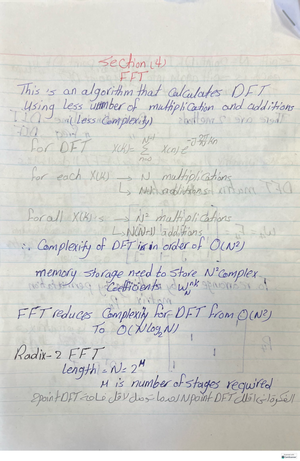 Section (4)
FFT
This is an algorithm that calculates DFT
using less number of multiplication and additions
(less complexity)
for DFT X(k) = Σ x(n) e
for each X(k) → N multiplications
↳ N-1 additions
for all X(k)s → N² multiplications
↳ N(N-1) additions
∴ Complexity of DFT is in order of O(N²)
memory storage need to store N² complex
Coefficients W_N^nk
FFT reduces Complexity for DFT from O(N²)
To O(N log₂ N)
Radix-2 FFT
length = N = 2^M
M is number of stages required
N point DFT